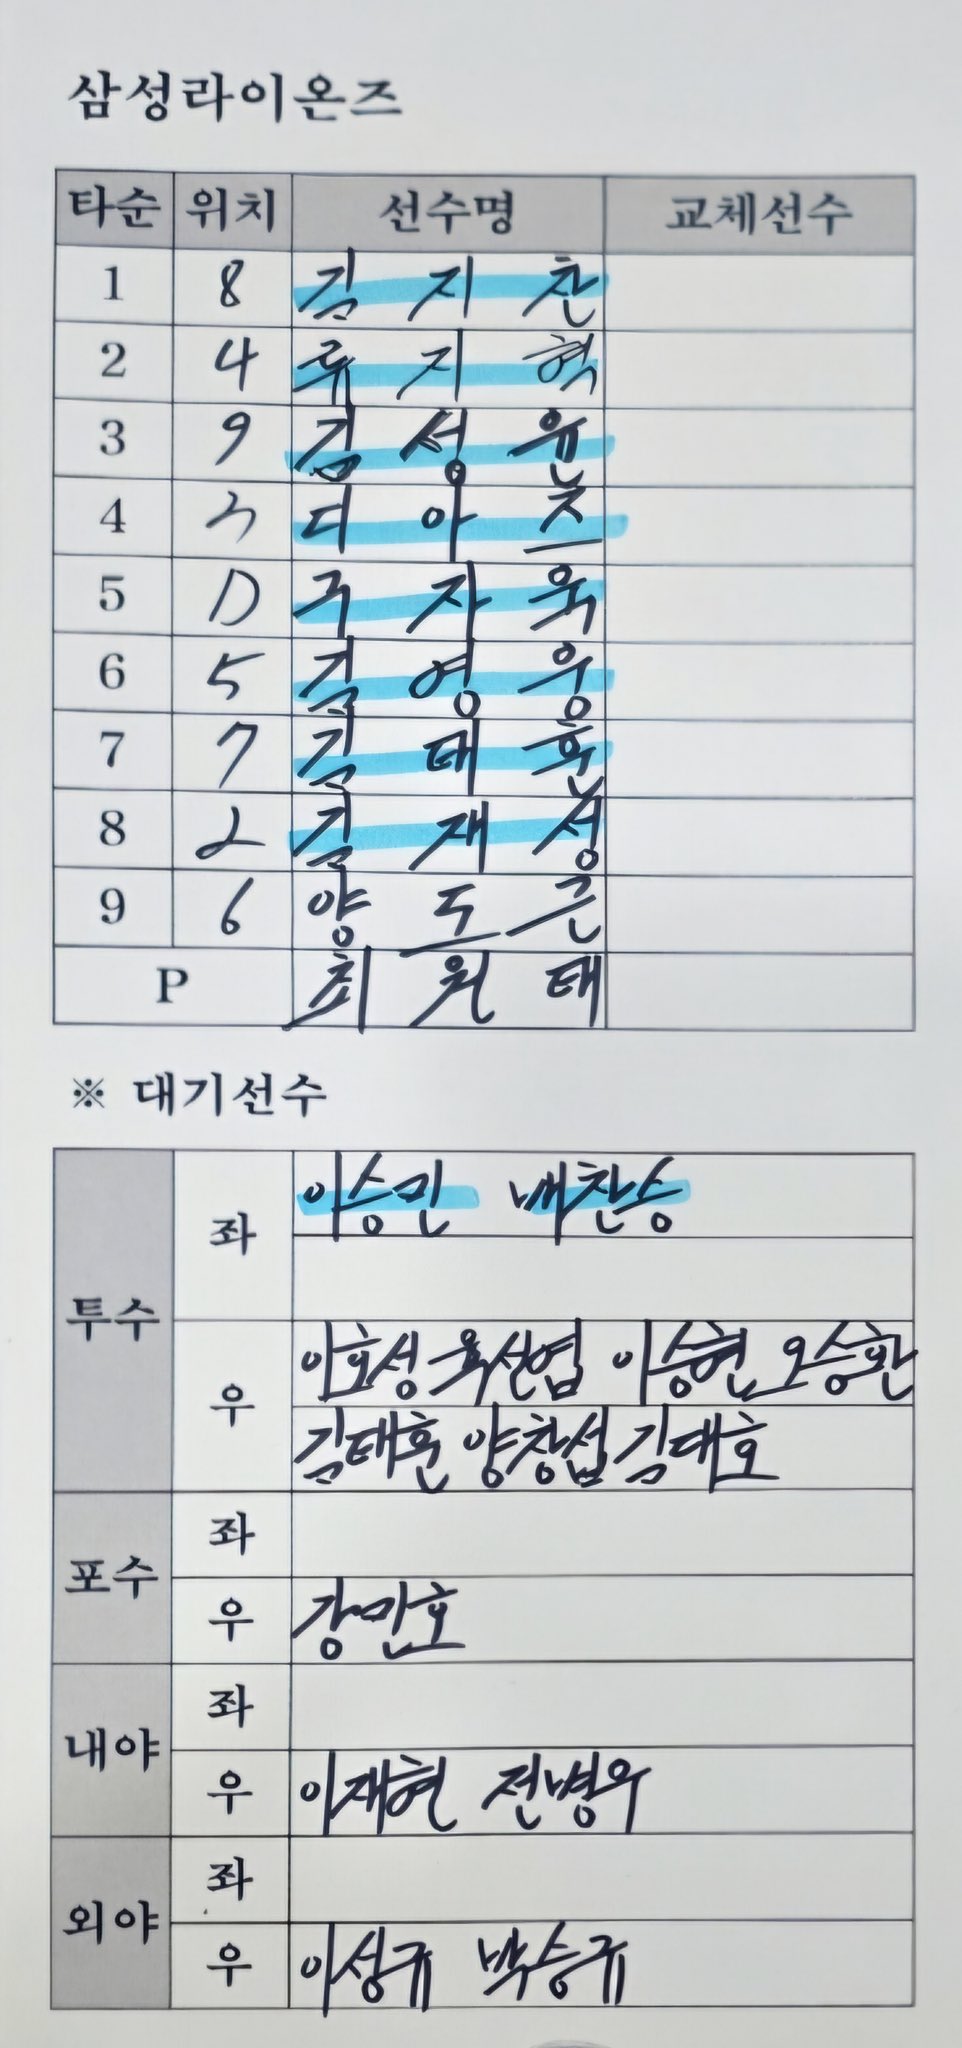 삼성라이온즈
타순 위치 선수명 교체선수
1 8 김지찬
2 4 류지혁
3 9 김성윤
4 3 디아즈
5 D 구자욱
6 5 김영웅
7 7 김태훈
8 2 김재성
9 6 양도근
P 최원태
※ 대기선수
투수 좌 이승민 배찬승
우 이호성 육선엽 이승현 오승환
김태훈 양창섭 김대호
포수 좌
우 강민호
내야 좌
우 이재현 전병우
외야 좌
우 이성규 박승규